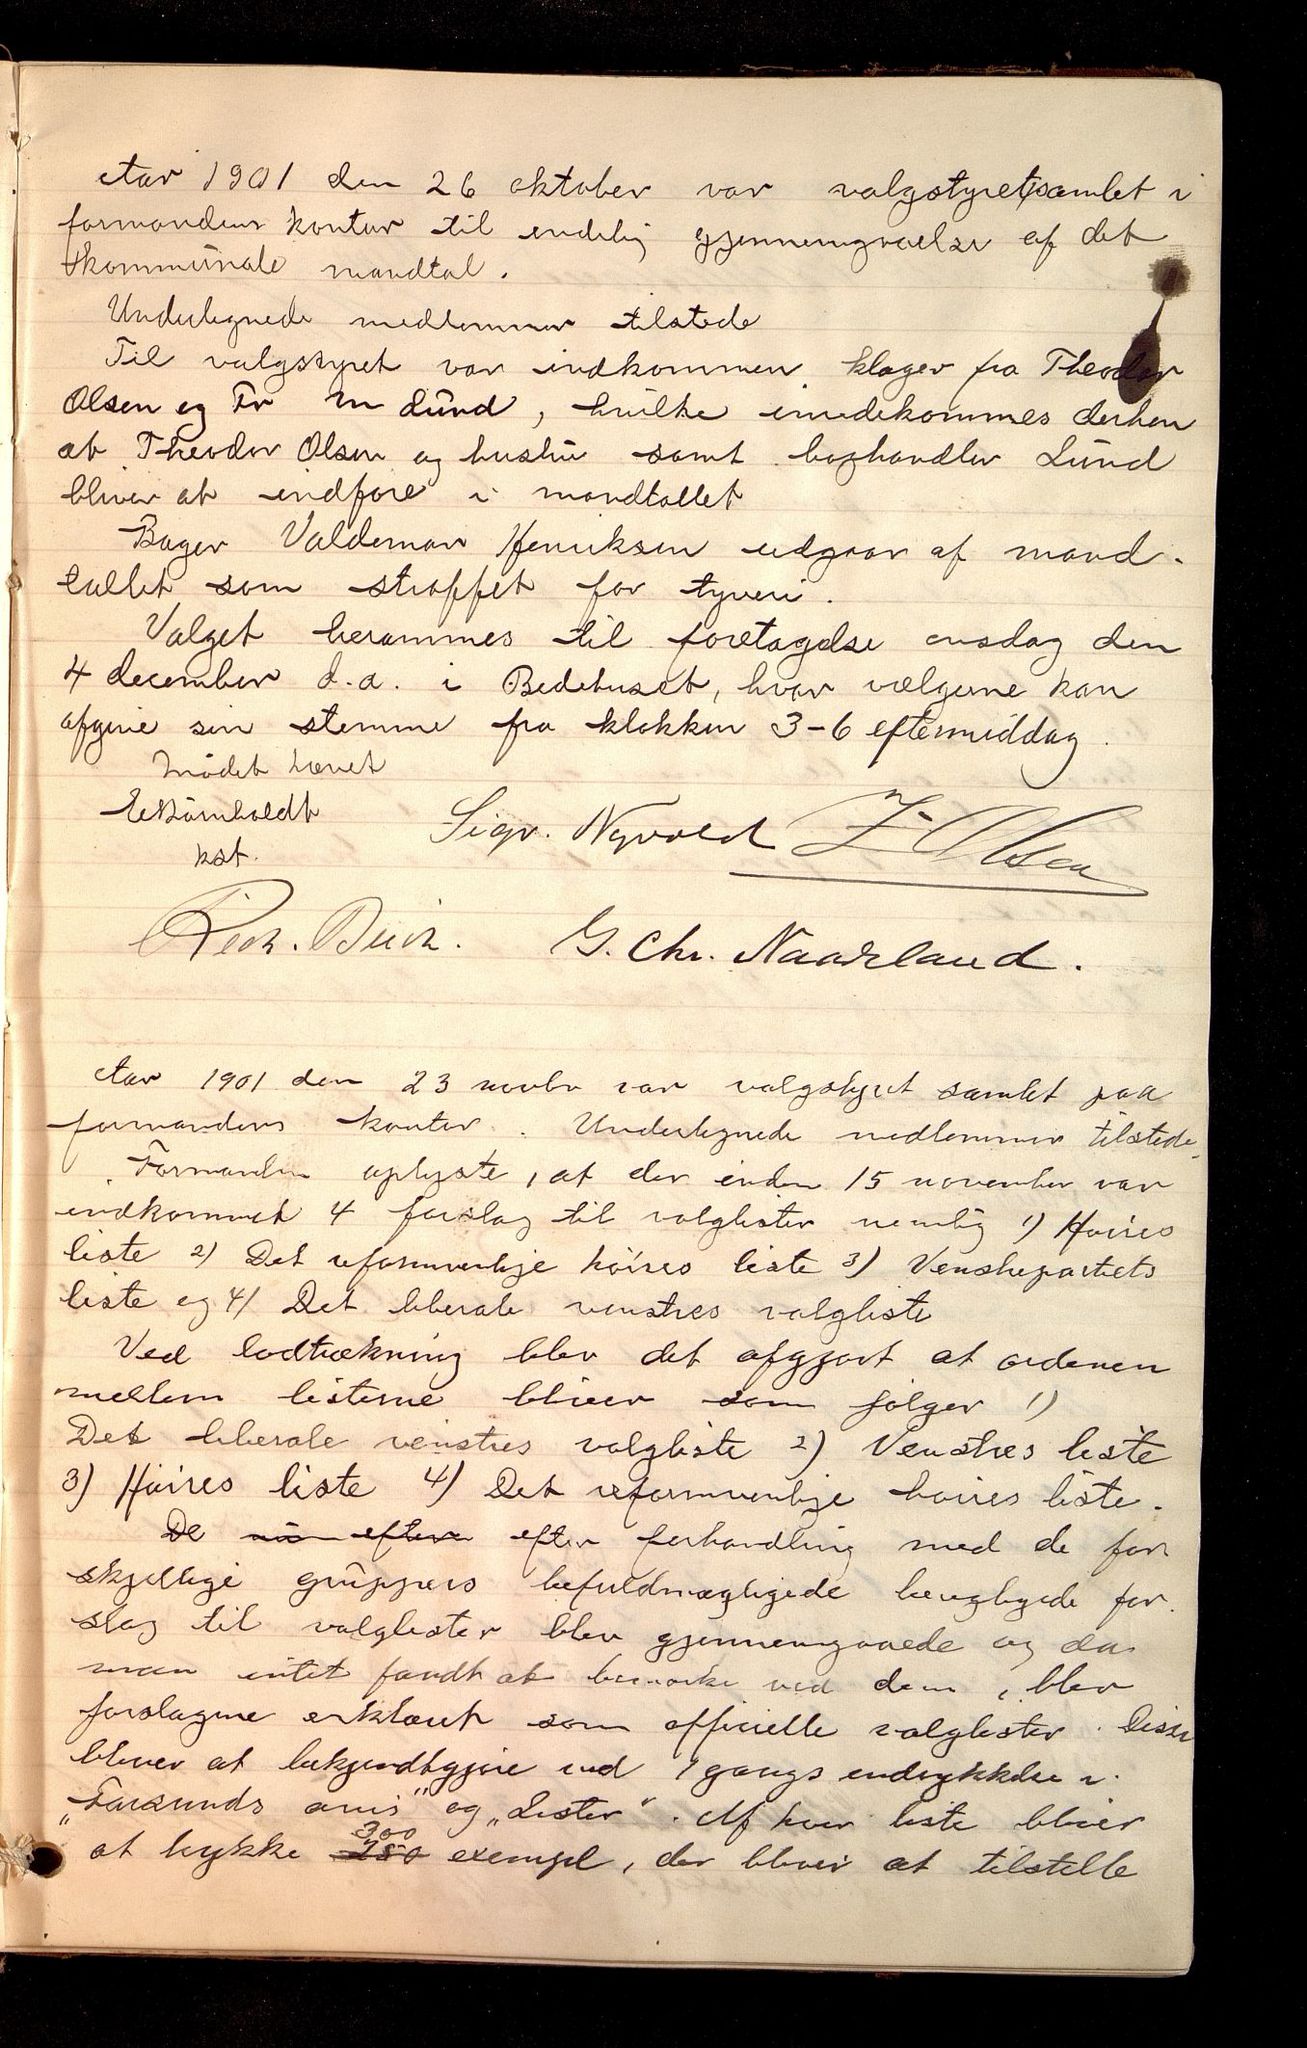 Aar 1901 den 26 oktober var valgstyret samlet i
formandens kontor til endelig gjennemgaaelse af det
kommunale mandtal.
Undertegnede medlemmer tilstede
Til valgstyret var indkommen klager fra Theodor
Olsen og Fr M Lund, hvilke imødekommes derhen
at Theodor Olsen og hustru samt boghandler Lund
bliver at indføre i mandtallet
Bager Valdemar Henriksen udgaar af mand-
tallet som straffet for tyveri.
Valget berammes til foretagelse onsdag den
4 december d.a. i Bedehuset, hvor vælgerne kan
afgive sin stemme fra klokken 3-6 eftermiddag.
Mødet hævet
kst.
Sigv. Nyvold Olsen
G. Chr. Naarland.
Aar 1901 den 23 novbr var valgstyret samlet paa
formandens kontor. Undertegnede medlemmer tilstede.
Formanden oplyste, at der inden 15 november var
indkommet 4 forslag til valglister nemlig 1) Høires
liste 2) Det reformvenlige høires liste 3) Venstrepartiets
liste og 4) Det liberale venstres valgliste
Ved lodtrækning blev det afgjort at ordenen
mellem listerne bliver som følger 1)
Det liberale venstres valgliste 2) Venstres liste
3) Høires liste 4) Det reformvenlige høires liste.
De efter forhandling med de for
skjellige gruppers befuldmægtigede berigtigede for
slag til valglister blev gjennemgaaede og da
man intet fandt at bemærke ved dem, blev
forslagene erklæret som officielle valglister. Disse
bliver at bekjendtgjøre ved 1 gangs indrykkelse i
"Farsunds avis" og "Lister". Af hver liste bliver
at trykke 300 exempl, der bliver at tilstille